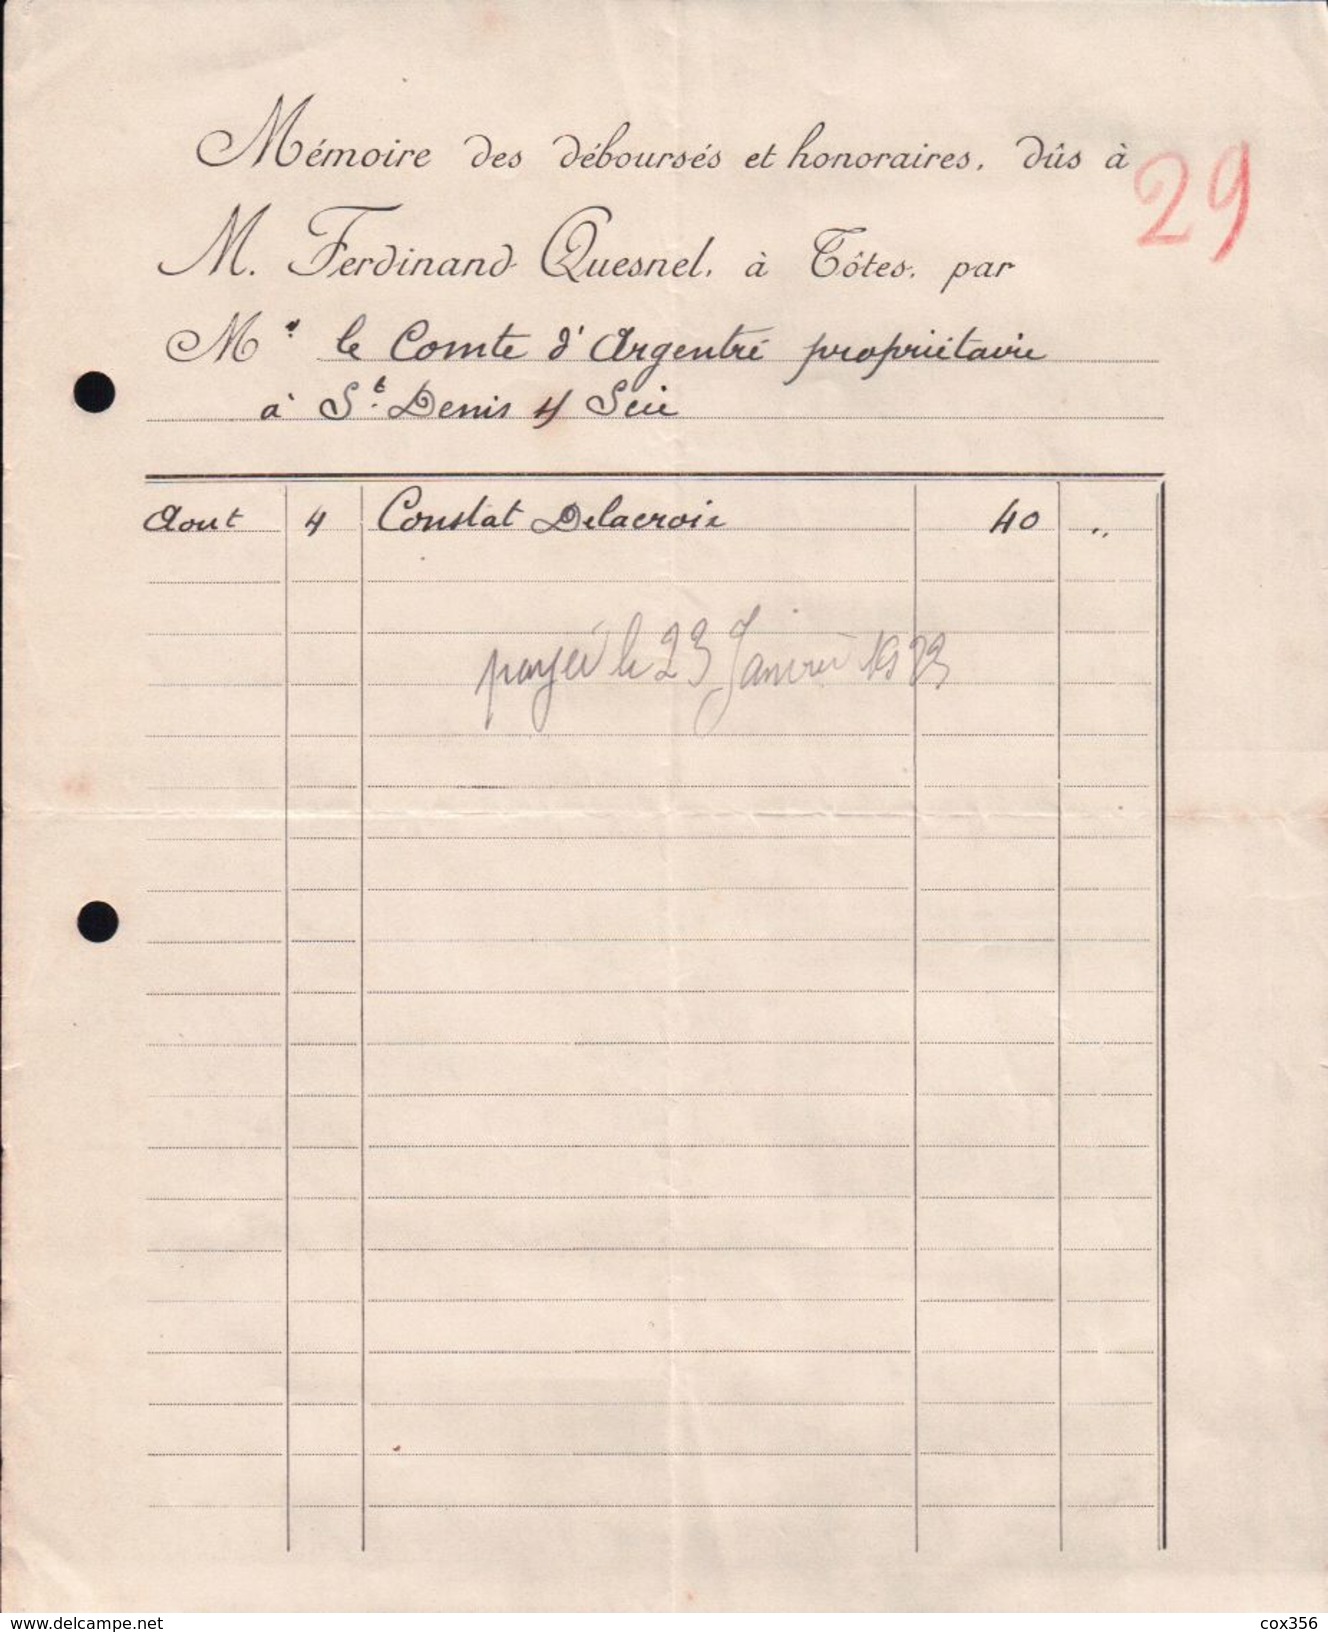 Mémoire des déboursés et honoraires, dûs à
29
M. Ferdinand Quesnel, à Tôtes, par
Mr le Comte d'Argentré propriétaire
à St. Denis s/ Scie
Aout 4 Constat Delacroix 40 "
payé le 23 Janvier 1923
www.delcampe.net
cox356